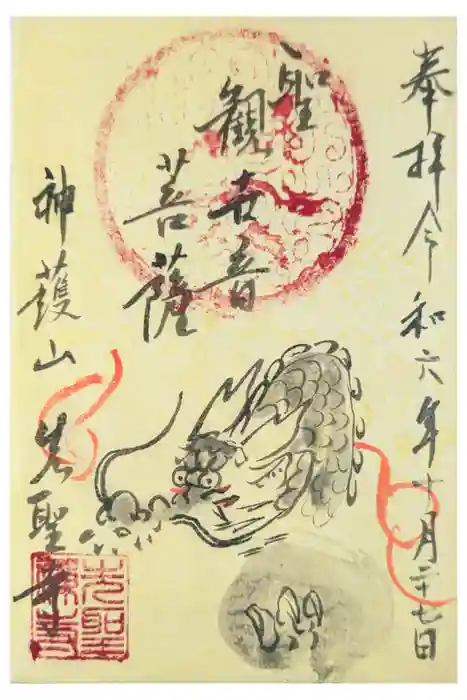 奉拝 令和六年十月二十七日
聖
観世音
菩薩
神護山 先聖寺
先聖
禅寺